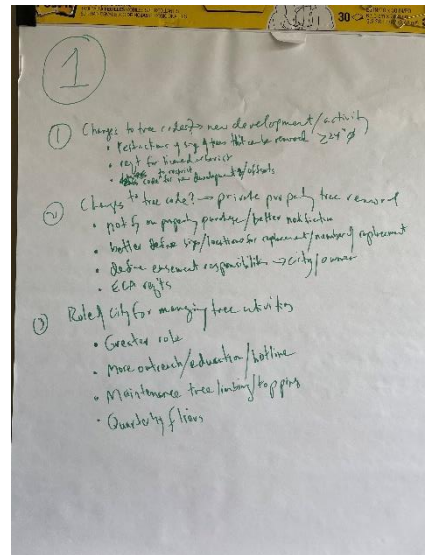 30
1
① Changes to tree codes? → new development/activity
• restrictions of size of trees that can be removed ≥24" ø
• req't for licensed arborist
to restrict
• code for new development w/offsets
② Changes to tree code? → private property tree removal
• notify on property purchase/better notification
• better define size/locations for replacement/number of replacement
• define easement responsibilities → city/owner
• ECA req'ts
③ Role of City for managing tree activities
• Greater role
• More outreach/education/hotline
• Maintenance tree limbing/topping
• Quarterly fliers